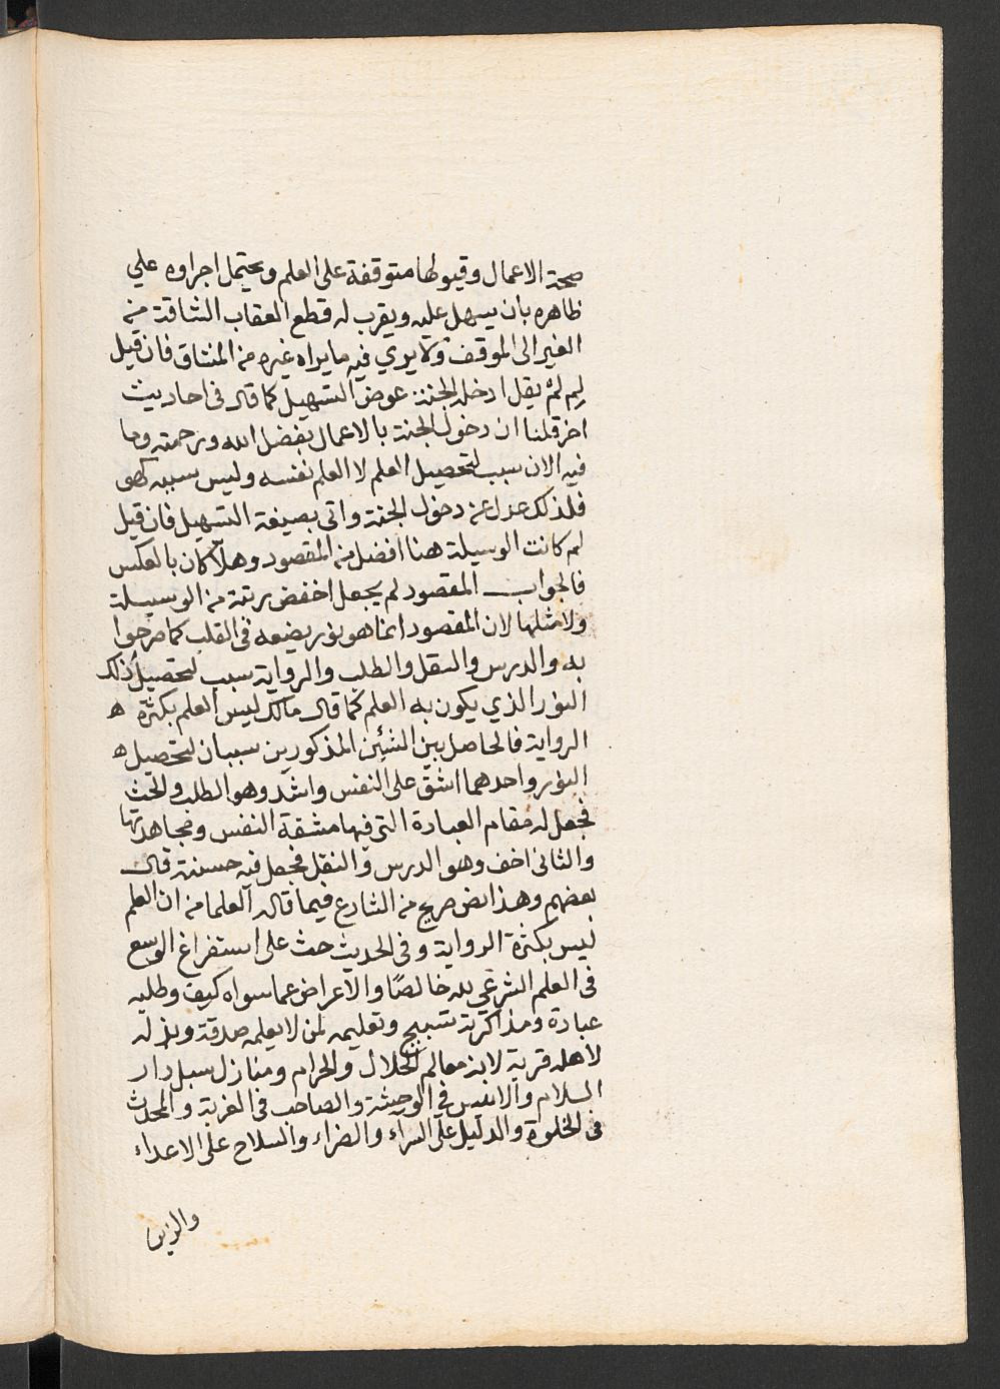 صحة الاعمال وقبولها متوقفة على العلم ويحتمل اجراوه علي
ظاهره بان يسهل عليه ويقرب له قطع العقاب الشاقة من
القبر الى الموقف ولا يري فيه ما يراه غيره من المشاق فان قيل
لِم لمْ يقل ادخله الجنة عوض التسهيل كما قال في احاديث
اخر قلنا ان دخول الجنة بالاعمال بفضل الله ورحمته وما
فيه الان سبب لتحصيل العلم لا العلم نفسه وليس سببه كهو
فلذلك عدل عن دخول الجنة واتى بصيغة التسهيل فان قيل
لم كانت الوسيلة هنا افضل من المقصود وهلّا كان بالعكس
فالجواب المقصود لم يجعل اخفض رتبة من الوسيلة
ولا مثلها لان المقصود انما هو نور يضعه في القلب كما صرحوا
به والدرس والنقل والطلب والرواية سبب لتحصيل ذلك
النور الذي يكون به العلم كما قال مالك ليس العلم بكثرة ه
الرواية فالحاصل بين الشئين المذكورين سببان لتحصيل ه
النور واحدهما اشق على النفس واشد وهو الطلب والحث
فجعل له مقام العبادة التي فيها مشقة النفس ومجاهدتها
والثاني اخف وهو الدرس والنقل فجعل فيه حسنة قال
بعضهم وهذا نص صريح من الشارع فيما قاله العلما من ان العلم
ليس بكثرة الرواية وفي الحديث حث على استفراغ الوسع
في العلم الشرعي لله خالصًا والاعراض عما سواه كيف وطلبه
عبادة ومذاكرته تسبيح وتعليمه لمن لا يعلمه صدقة وبذله
لاهله قربة لانه معالم الحلال والحرام ومنازل سبل دار
السلام والانيس في الوحشة والصاحب في الغربة والمحدث
في الخلوة والدليل على السراء والضراء والسلاح على الاعداء
والزين